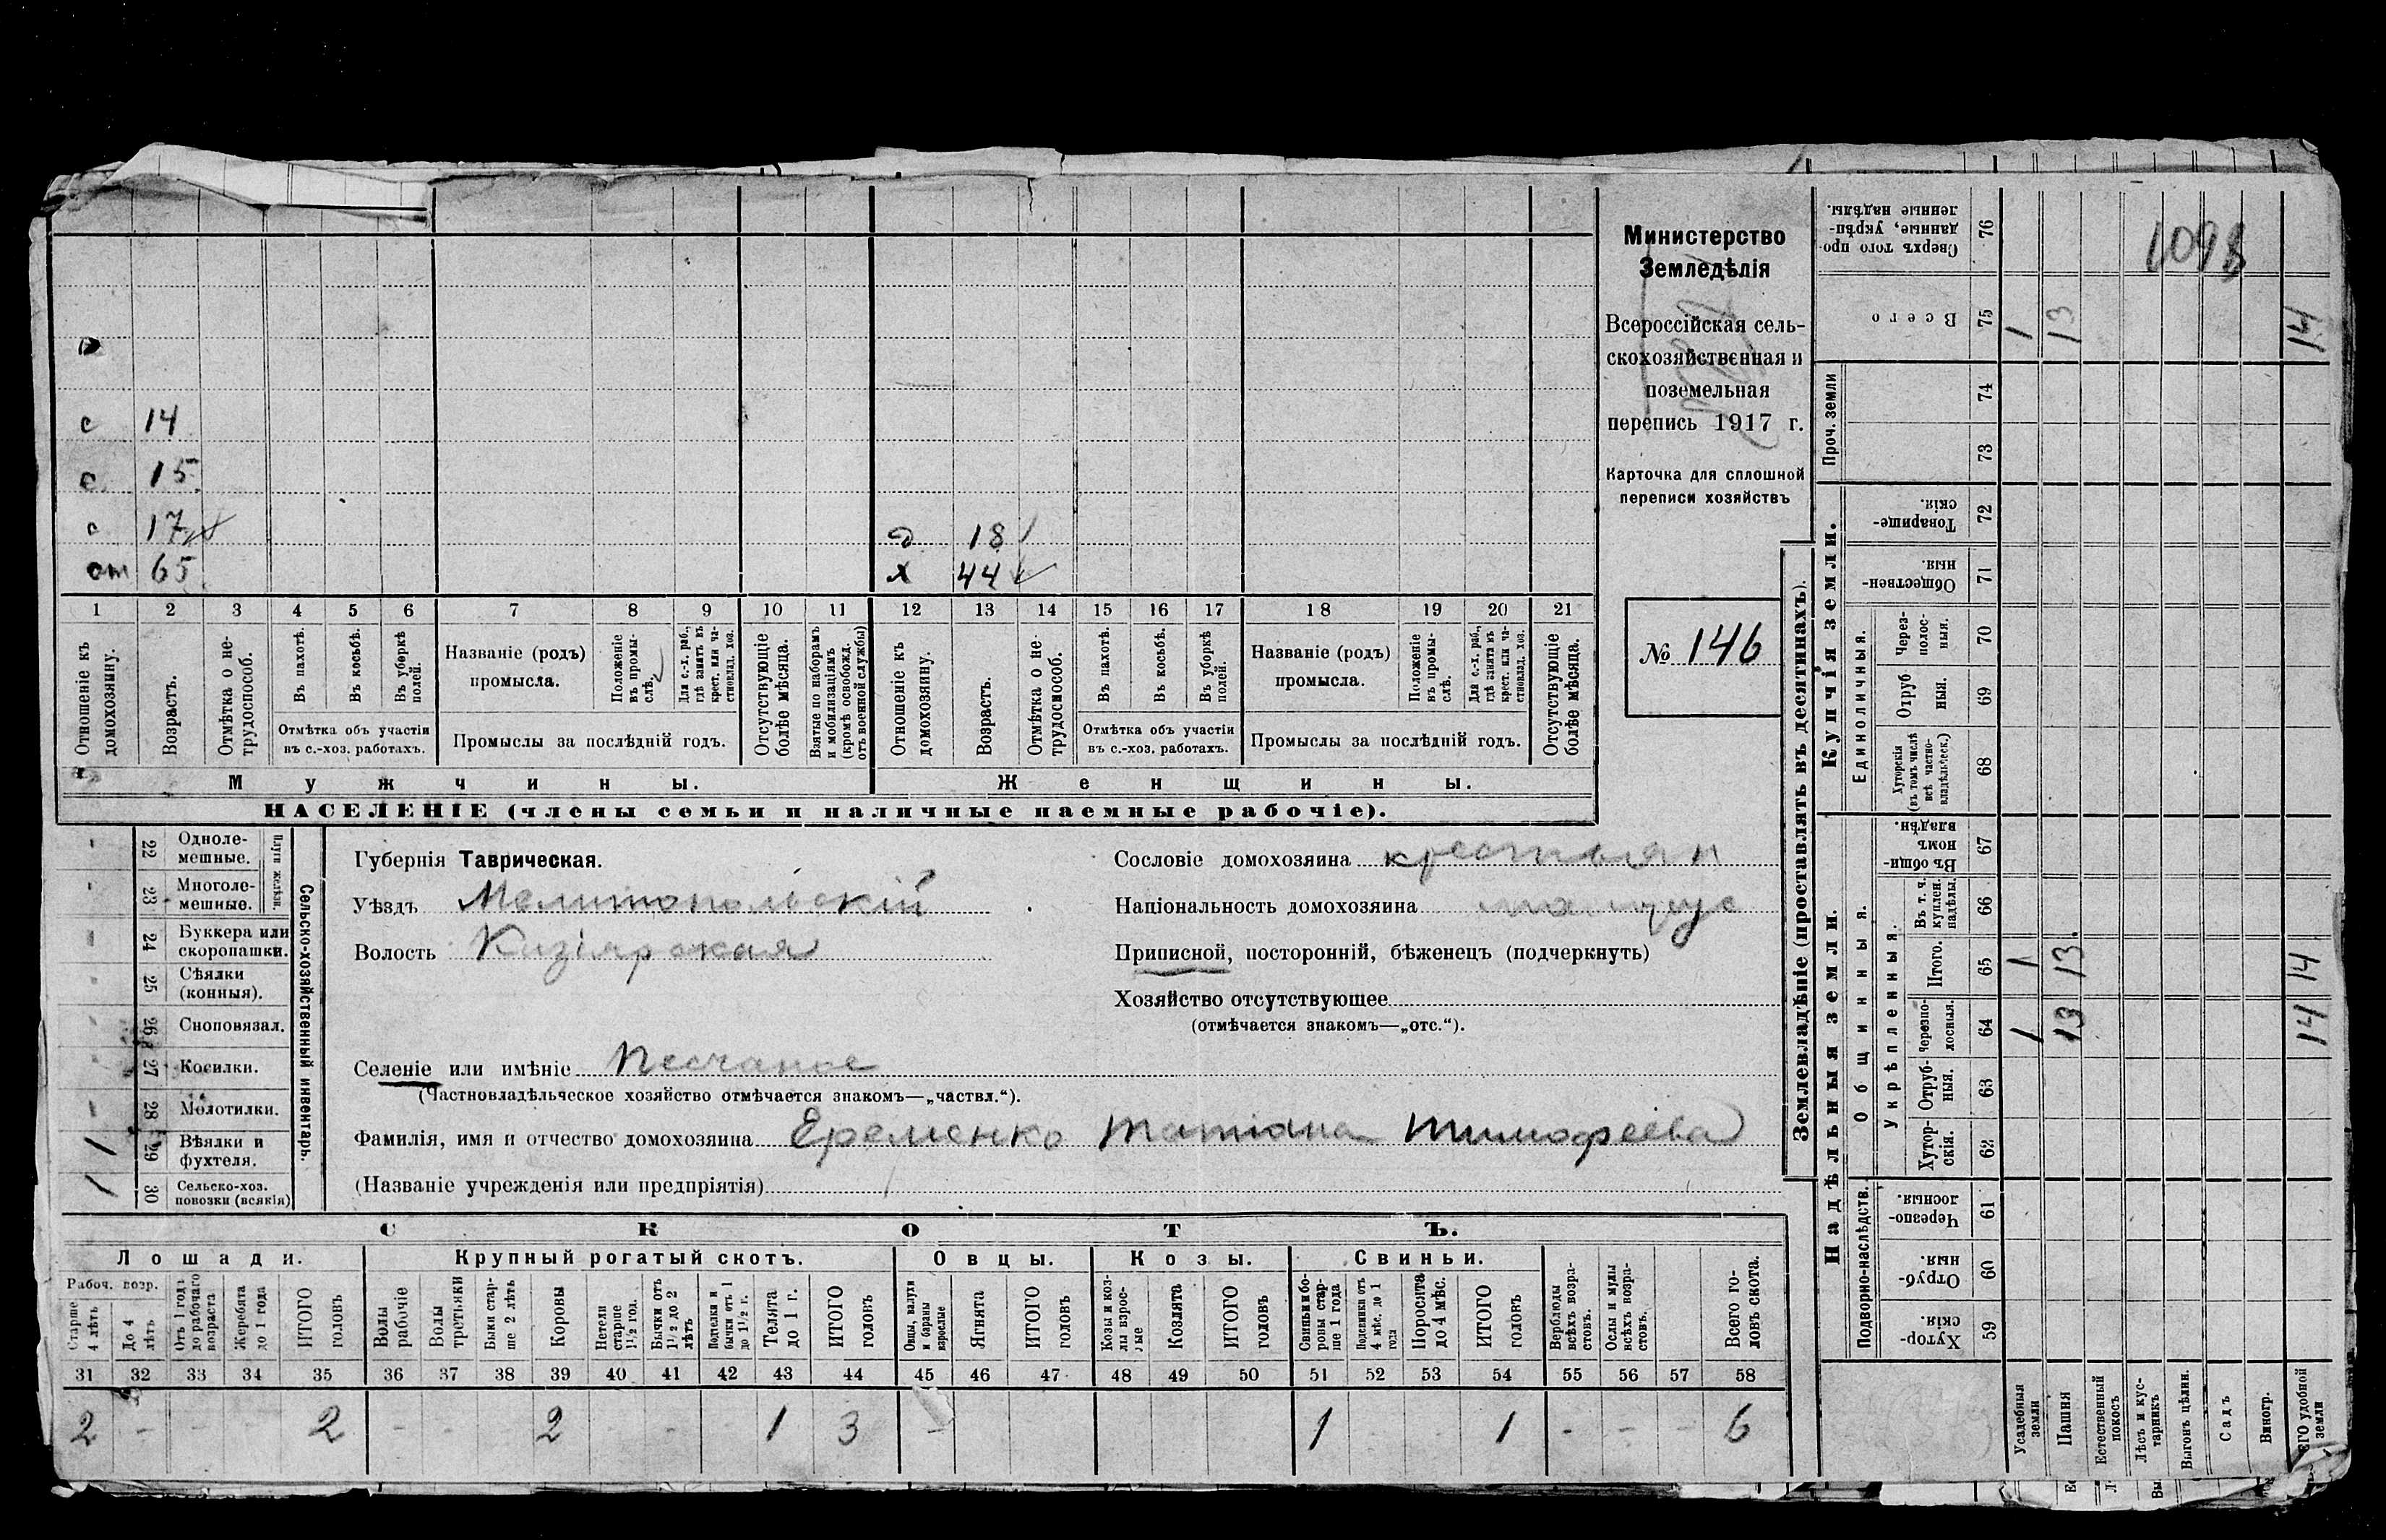 Министерство
Земледѣлія
Всероссійская сель-
скохозяйственная и
поземельная
перепись 1917 г.
Карточка для сплошной
переписи хозяйствъ
№ 146
с 14
с 15
с 17
от 65
д 18
х 44
1 2 3 4 5 6 7 8 9 10 11 12 13 14 15 16 17 18 19 20 21
Отношеніе къ домохозяину.
Возрастъ.
Отмѣтка о не-трудоспособ.
Въ пахотѣ.
Въ косьбѣ.
Въ уборкѣ полей.
Отмѣтка объ участіи
въ с.-хоз. работахъ.
Названіе (родъ)
промысла.
Положеніе въ промы-слѣ.
Для с.-х. раб., гдѣ занятъ въ крест. или ча-стновлад. хоз.
Промыслы за послѣдній годъ.
Отсутствующіе болѣе мѣсяца.
Взятые по наборамъ и мобилизаціямъ (кромѣ освобожд. отъ военной службы)
Отношеніе къ домохозяину.
Возрастъ.
Отмѣтка о не-трудоспособ.
Въ пахотѣ.
Въ косьбѣ.
Въ уборкѣ полей.
Отмѣтка объ участіи
въ с.-хоз. работахъ.
Названіе (родъ)
промысла.
Положеніе въ промы-слѣ.
Для с.-х. раб., гдѣ занята въ крест. или ча-стновлад. хоз.
Промыслы за послѣдній годъ.
Отсутствующіе болѣе мѣсяца.
Мужчины.
Женщины.
НАСЕЛЕНІЕ (члены семьи и наличные наемные рабочіе).
22 Одноле-мешные.
23 Многоле-мешные.
Плуги желѣзн.
24 Буккера или скоропашки.
25 Сѣялки (конныя).
26 Сноповязал.
27 Косилки.
28 Молотилки.
1 29 Вѣялки и фухтеля.
1 30 Сельско-хоз. повозки (всякія)
Сельско-хозяйственный инвентарь.
Губернія Таврическая.
Уѣздъ Мелитопольскій
Волость Кизіярская
Селеніе или имѣніе Песчаное
(Частновладѣльческое хозяйство отмѣчается знакомъ—„частвл.“).
Фамилія, имя и отчество домохозяина Еременко Татіана Тимофеева
(Названіе учрежденія или предпріятія)
Сословіе домохозяина крестьян
Національность домохозяина
Приписной, посторонній, бѣженецъ (подчеркнуть)
Хозяйство отсутствующее
(отмѣчается знакомъ—„отс.“).
СКОТЪ.
Лошади.
Крупный рогатый скотъ.
Овцы.
Козы.
Свиньи.
Рабоч. возр.
Старше 4 лѣтъ
До 4 лѣтъ
Отъ 1 года до рабочаго возраста
Жеребята до 1 года
ИТОГО головъ
Волы рабочіе
Волы третьяки
Быки стар-ше 2 лѣтъ
Коровы
Нетели старше 1½ год.
Бычки отъ 1½ до 2 лѣтъ
Подтелки и бычки отъ 1 до 1½ г.
Телята до 1 г.
ИТОГО головъ
Овцы, валухи и бараны взрослые
Ягнята
ИТОГО головъ
Козы и коз-лы взрос-лые
Козлята
ИТОГО головъ
Свиньи и бо-роны стар-ше 1 года
Подсвинки отъ 4 мѣс. до 1 года
Поросята до 4 мѣс.
ИТОГО головъ
Верблюды всѣхъ возра-стовъ.
Ослы и мулы всѣхъ возра-стовъ.
Всего го-ловъ скота.
31 32 33 34 35 36 37 38 39 40 41 42 43 44 45 46 47 48 49 50 51 52 53 54 55 56 57 58
2 - - - 2 - - - 2 - - - 1 3 - 1 - - 1 - - - 6
Землевладѣніе (проставлять въ десятинахъ).
Надѣльныя земли.
Купчія земли.
Проч. земли
Подворно-наслѣдств.
Общинныя.
Укрѣпленныя.
Единоличныя.
Хутор-скія. 59
Отруб-ныя. 60
Черезпо-лосныя. 61
Хутор-скія. 62
Отруб-ныя. 63
Черезпо-лосныя. 64 1 13 14
Итого. 65 1 13 14
Въ т. ч. куплен. надѣлы. 66
Въ общи-номъ владѣн. 67
Хуторскія (въ томъ числѣ всѣ частно-владѣльческ.) 68
Отруб ныя. 69
Через-полос-ныя. 70
Обществен-ныя. 71
Товарище-скія. 72
73
74
Всего 75 1 13 14
Сверхъ того про-данные, укрѣп-ленные надѣлы. 76
1098
Усадебныя земли
Пашня
Естественный покосъ
Лѣсъ и кус-тарникъ
Выгонъ цѣлин.
Садъ
Виногр.
ЕГО удобной земли